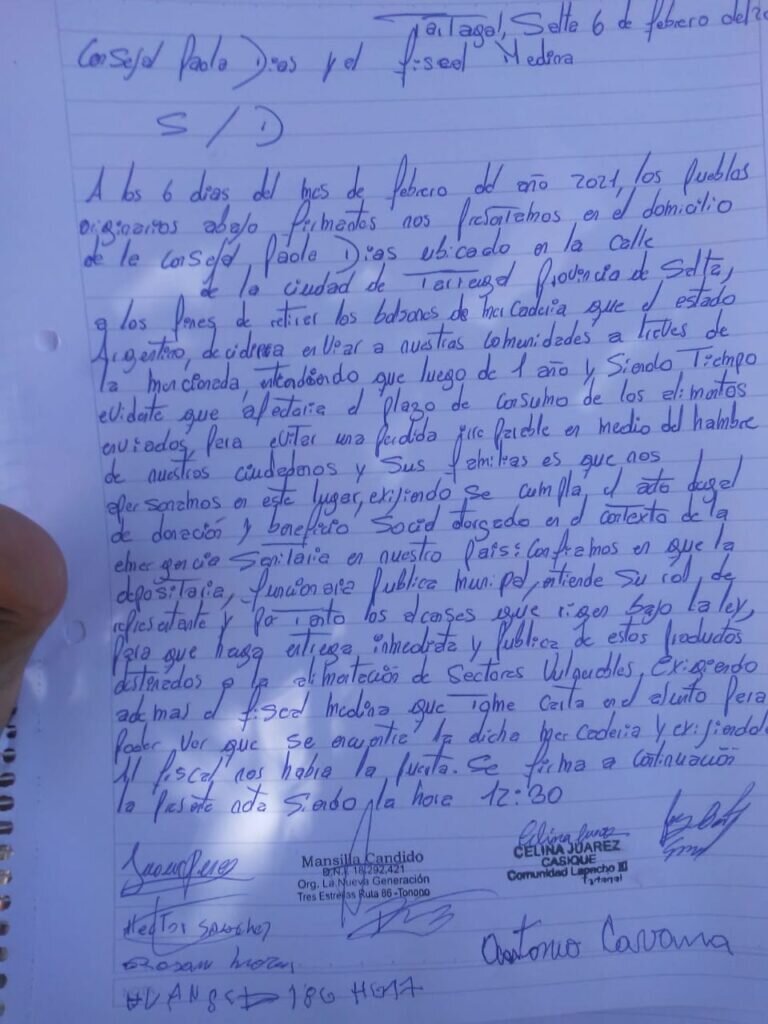 Tartagal, Salta 6 de febrero del 20
Consejal Paola Dias y el fiscal Medina
S / D
A los 6 dias del mes de febrero del año 2021, los pueblos
originarios abajo firmantes nos presentamos en el domicilio
de la consejal, Paola Dias ubicado en la calle
de la ciudad de Tartagal provincia de Salta,
a los fines de retirar los bolsones de mercaderia que el estado
Argentino, decidiera enviar a nuestras comunidades a traves de
la mencionada, entendiendo que luego de 1 año y Siendo Tiempo
evidente que afectaria el plazo de consumo de los alimentos
enviados, para evitar una perdida irreparable en medio del hambre
de nuestros ciudadanos y sus familias es que nos
apersonamos en este lugar, exijiendo se cumpla, el acto legal
de donación y beneficio Social otorgado en el contexto de la
emergencia Sanitaria en nuestro Pais: Confiamos en que la
depositaria, funcionaria publica municipal, entiende su rol, de
representante y por Tanto los alcanses que rigen bajo la ley,
para que haga entrega inmediata y publica de estos productos
destinados a la alimentación de Sectores Vulnerables, exigiendo
ademas el fiscal medina que Tome carta en el asunto para
poder ver que se encuentre la dicha mercaderia y exijiendole
Al fiscal nos habra la puerta. Se firma a continuación
la presente nota siendo la hora 12:30
Mansilla Candido
D.N.I. 18.292.421
Org. La Nueva Generación
Tres Estrellas Ruta 86 -Tonono
Celina Juarez
CELINA JUAREZ
CASIQUE
Comunidad Lapacho III
Tartagal
Hector Sanchez
Antonio Cavana